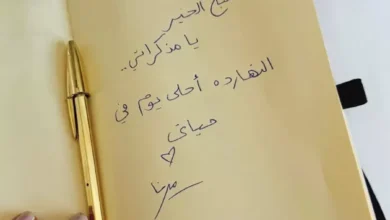 صباح الخير
يا مذكراتي..
النهارده أحلى يوم في
حياتي
ميرنا